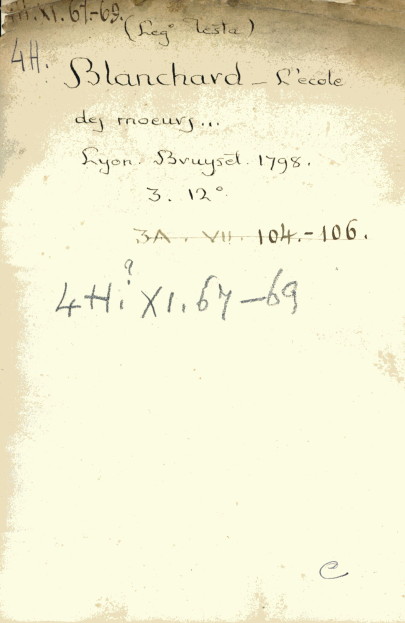 4H. XI. 67-69.
(Leg° Testa)
4H.
Blanchard - L'ecole
des moeurs...
Lyon. Bruyset. 1798.
3. 12°
3A. VII. 104.-106.
?
4H. XI. 67-69
C